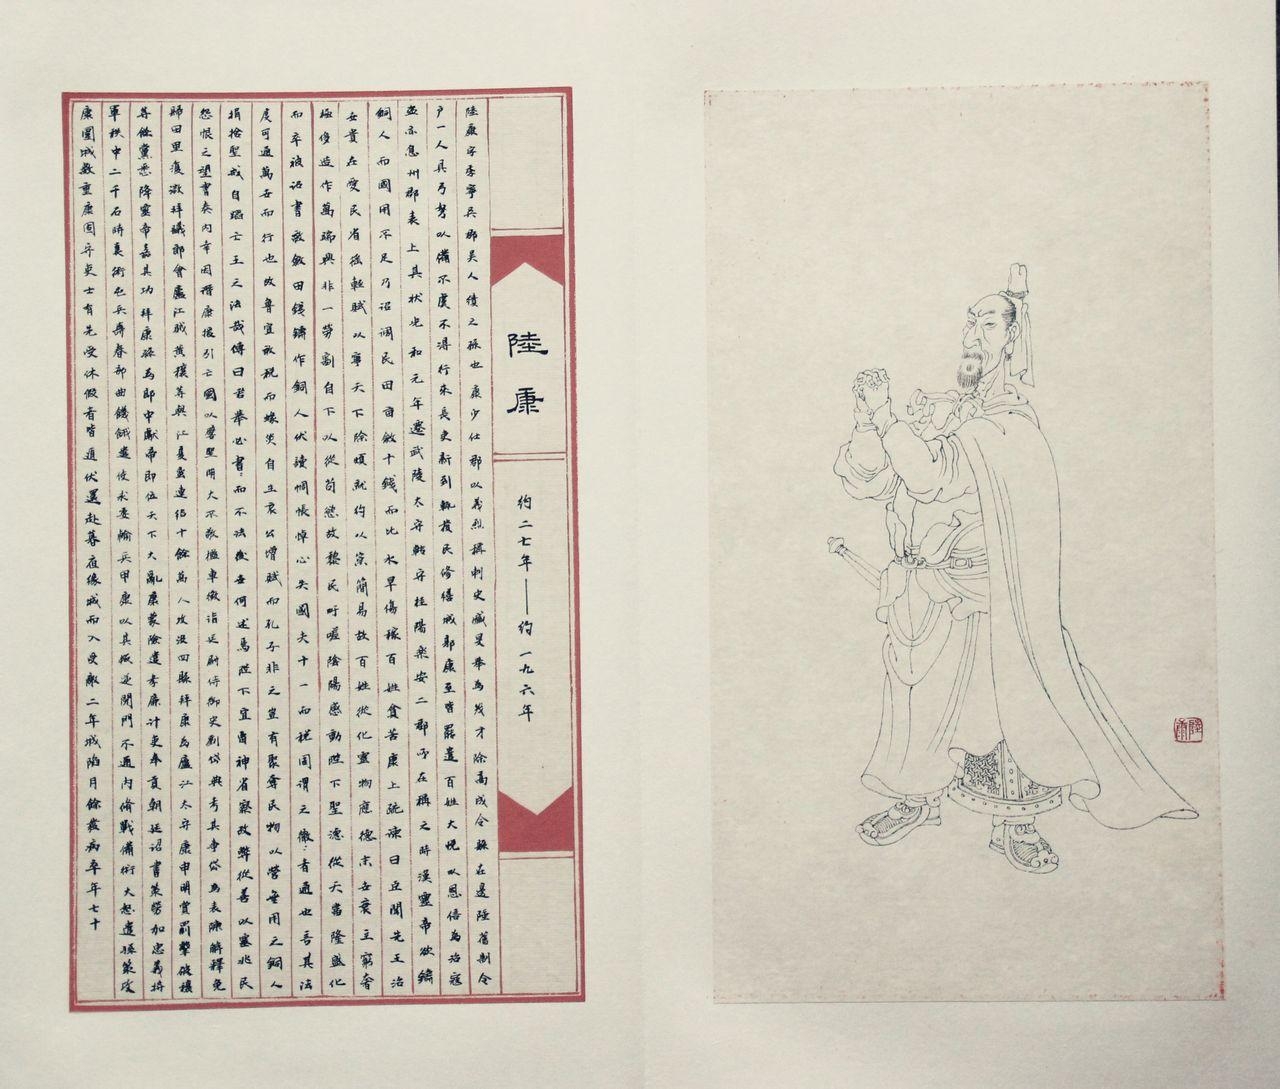 陸康
约二七年——约一九六年
陸康字季寧吳郡吳人續之孫也康少仕郡以義烈稱刺史臧旻舉為茂才除高成令縣在邊陲舊制令
户一人具弓弩以備不虞不得行來長吏新到輒發民修繕城郭康至皆罷遣百姓大悅以恩信為治寇
盜亦息州郡表上其狀光和元年遷武陵太守轉守桂陽樂安二郡所在稱之時漢靈帝欲鑄
銅人而國用不足乃詔調民田畝斂十錢而比水旱傷稼百姓貧苦康上疏諫曰臣聞先王治
世貴在愛民省徭輕賦以寧天下除煩就约以崇簡易故百姓從化靈物應德末世衰主窮奢
極侈造作萬端興非一勞割自下以從苟慾故黎民吁嗟陰陽感動陛下聖德從天當隆盛化
而卒被詔書畝斂田錢鑄作銅人伏讀惆悵悼心失圖夫十一而税周謂之徹：者通也言其法
度可通萬世而行也故魯宣畝税而蝝災自生哀公增賦而孔子非之豈有聚奪民物以營無用之銅人
捐捨聖戒自蹈亡王之法哉傳曰君舉必書：而不法後世何述焉陛下宜留神省察改弊從善以塞兆民
怨恨之望書奏內幸因譖康援引亡國以譬聖明大不敬檻車徵詣廷尉侍御史劉岱典考其事岱為表陳解釋免
歸田里復徵拜議郎會廬江賊黃穰等與江夏蠻連結十餘萬人攻沒四縣拜康為廬江太守康申明賞罰擊破穰
等餘黨悉降靈帝嘉其功拜康孫為郎中獻帝即位天下大亂康蒙險遣孝廉計吏奉貢朝廷詔書策勞加忠義將
軍秩中二千石時袁術屯兵壽春部曲饑餓遣使求委輸兵甲康以其叛逆閉門不通內修戰備術大怒遣孫策攻
康圍城數重康固守吏士有先受休假者皆遁伏還赴暮夜緣城而入受敵二年城陷月餘發病卒年七十
陸康